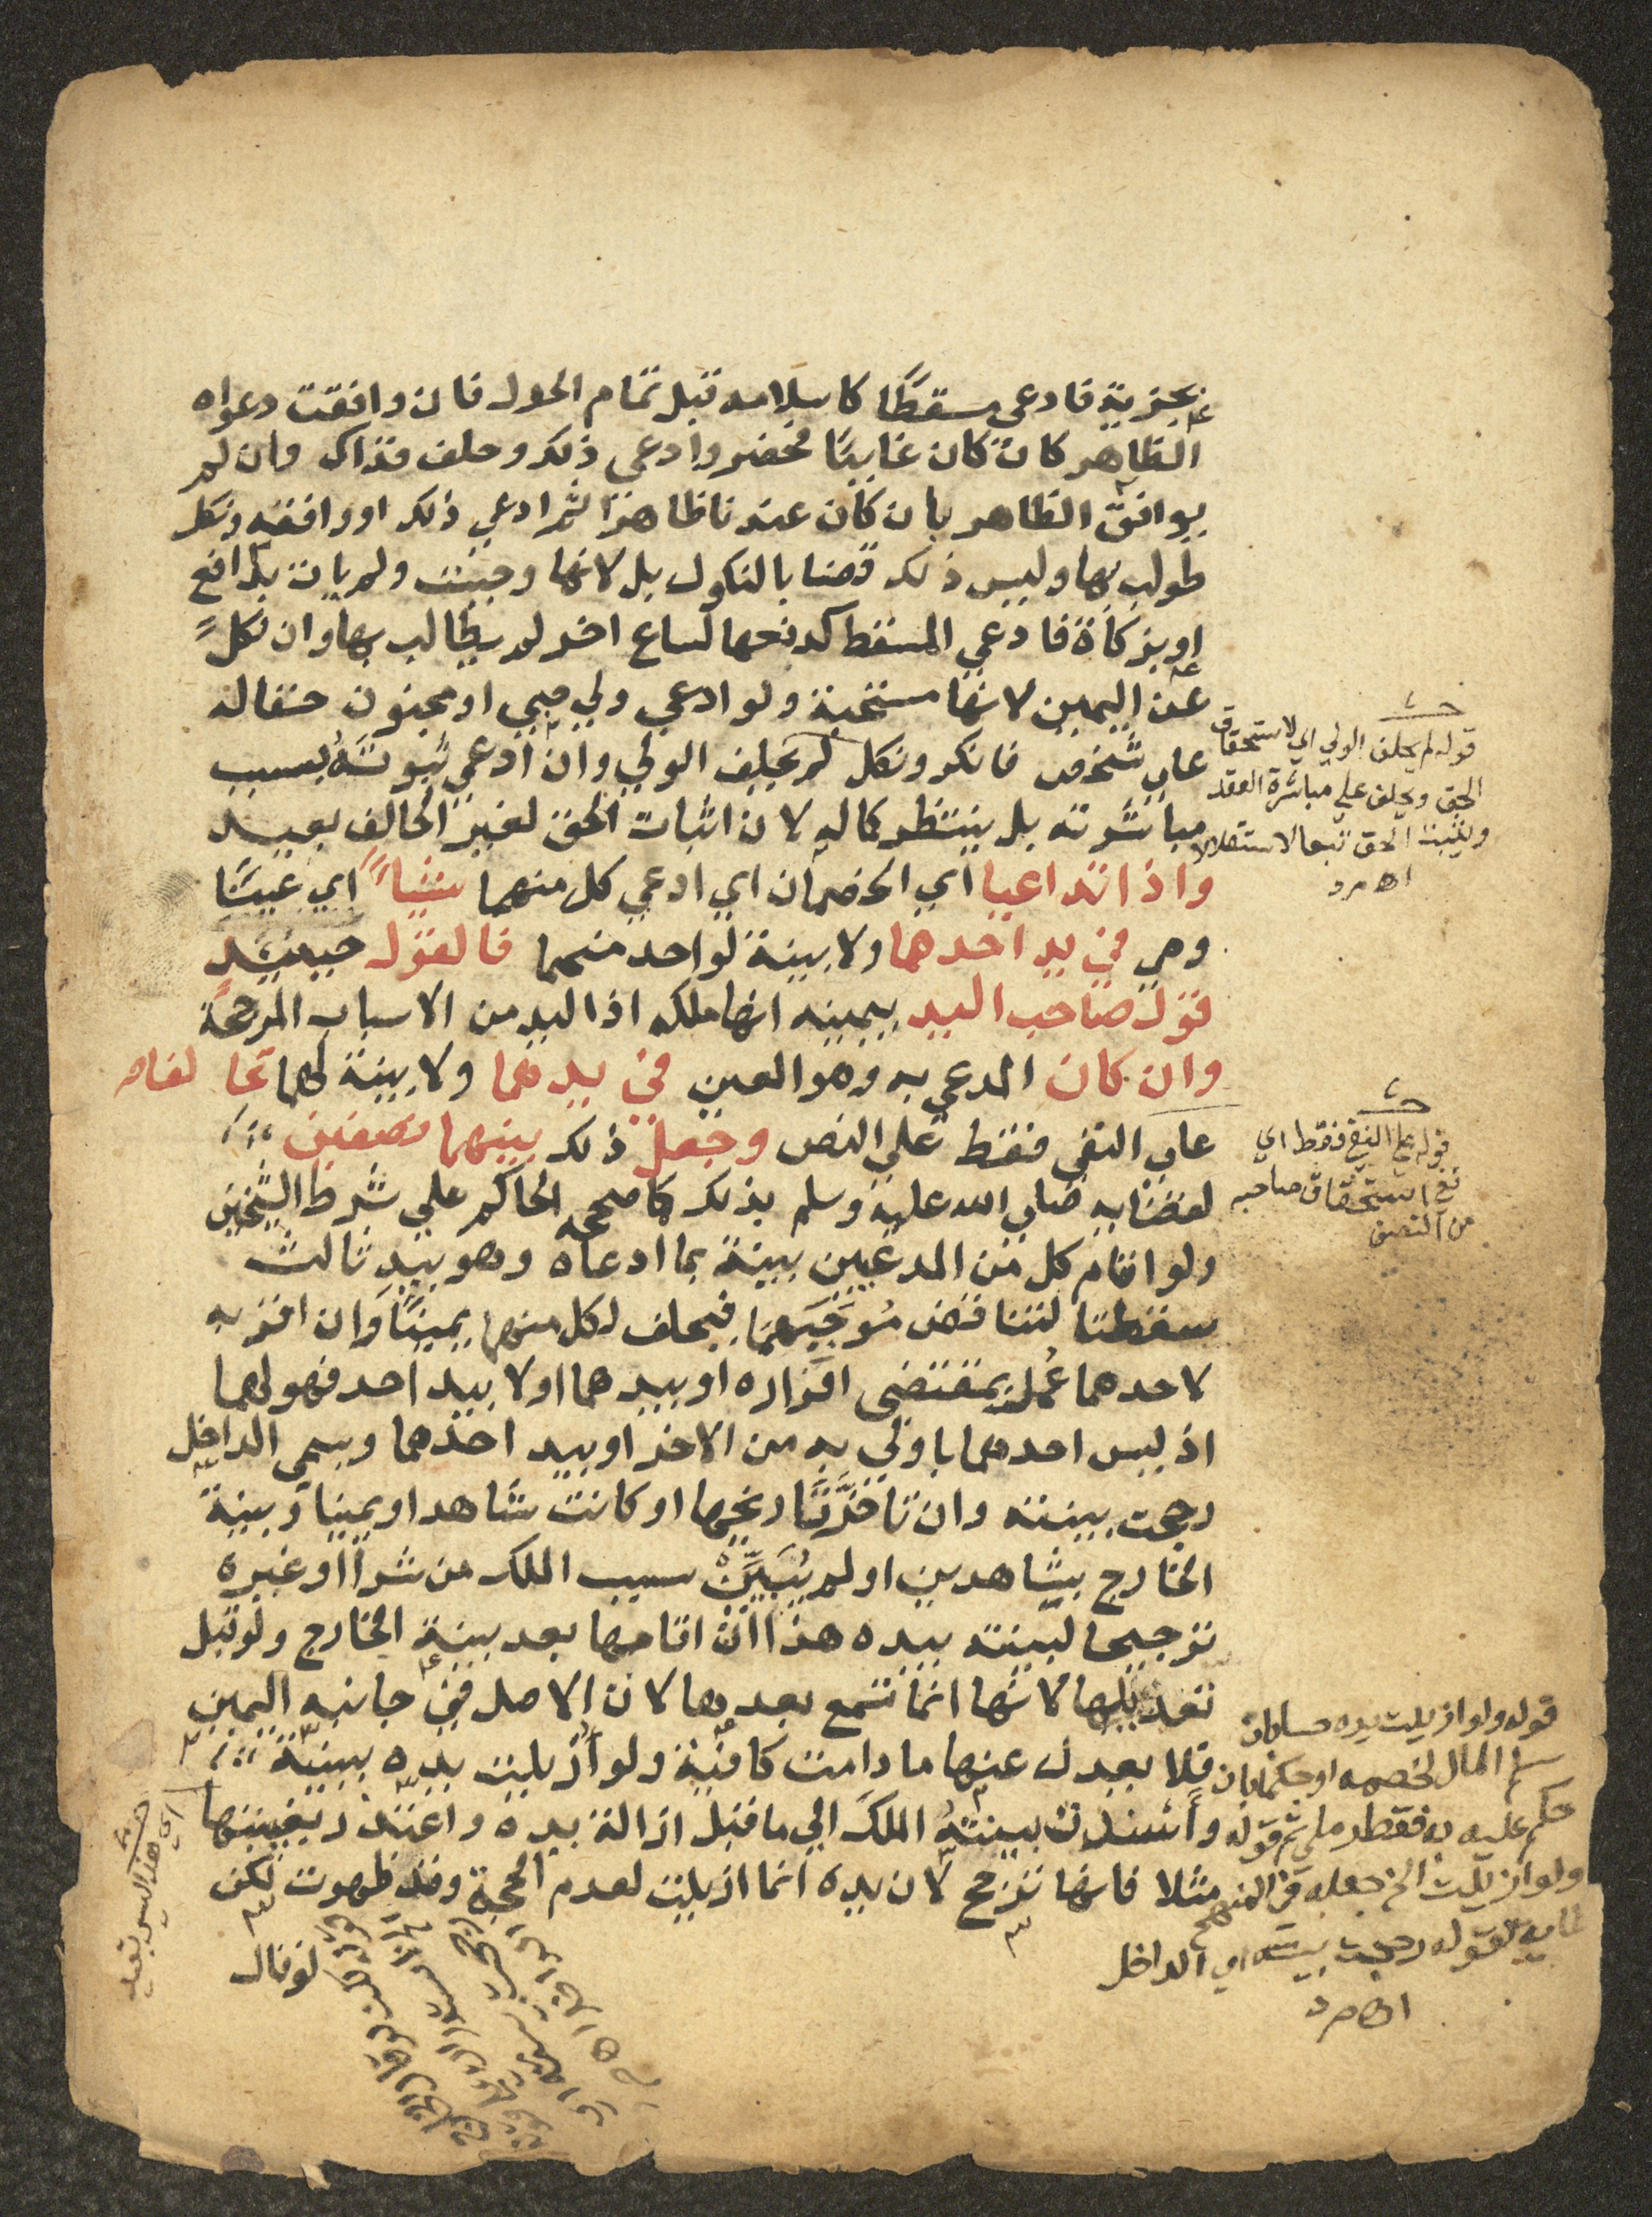 بجزية فادعى مسقطًا كاسلامه قبل تمام الحول فان وافقت دعواه
الظاهر كان كان غايبًا فحضر وادعى ذلك وحلف فذاك وان لم
يوافق الظاهر بان كان عندنا ظاهرا ثم ادعي ذلك او وافقه ونكل
طولب بها وليس ذلك قضا بالنكول بل لانها وجبت ولم يات بدافع
او بزكاة فادعي المسقط كدفعها لساع اخر لم يطالب بها وان نكل
عن اليمين لانها مستحبة ولو ادعي ولي صبي او مجنون حقا له
علي شخص فانكر ونكل لم يحلف الولي وان ادعي ثبوته بسبب
مباشرته بل ينتظر كماله لان اثبات الحق لغير الحالف بعيد
واذا تداعيا اي الخصمان اي ادعي كل منهما شيئا اي عينًا
وهي في يد احدهما ولا بينة لواحد منهما فالقول حينئيد
قول صاحب اليد بيمينه انها ملكه اذ اليد من الاسباب المرجحة
وان كان المدعي به وهو العين في يدهما ولا بينة لهما تحالفا
علي النفي فقط علي النص وجعل ذلك بينهما نصفين
لقضايه صلي الله عليه وسلم بذلك كما صححه الحاكم علي شرط الشيخين
ولو اقام كل من المدعيين بينة بما ادعاه وهو بيد ثالث
سقطتا لتناقض مُوجَبَيهما فيحلف لكل منهما يمينًا وان اقر به
لاحدهما عُمل بمقتضى اقراره او بيدهما اولا بيد احد فهو لهما
اذ ليس احدهما باولي به من الاخر او بيد احدهما ويسمي الداخل
رجحت بينته وان تاخر تاريخها او كانت شاهدا ويمينا وبينة
الخارج بشاهدين او لم يُبَيِّنْ سبب الملك من شرا او غيره
ترجيحا لبينته بيده هذا ان اقامها بعد بينة الخارج ولو قبل
تعديلها لانها انما تسمع بعدها لان الاصل في جانبه اليمين
فلا يعدل عنها ما دامت كافية ولو ازيلت يده ببينة
وأسندت بينتهُ الملك الي ما قبل ازالة يده واعتذر بغيبتها
مثلا فانها ترجح لان يده انما ازيلت لعدم الحجة وقد ظهرت لكن
لو قال
قوله لم يحلف الولي اي لاستحقاق
الحق ويحلف علي مباشرة العقد
ويثبت الحق تبعا لا استقلالا
اه مرد
قوله علي النفي فقط اي
نفي استحقاق صاحبه
من النصف
قوله ولو ازيلت يده حسا بان
سلم المال لخصمه او حكما بان
حكم عليه به فقط
ولو ازيلت الخ جعله في المنهج
غاية لقوله رجحت بينته اي الداخل
اه مرد